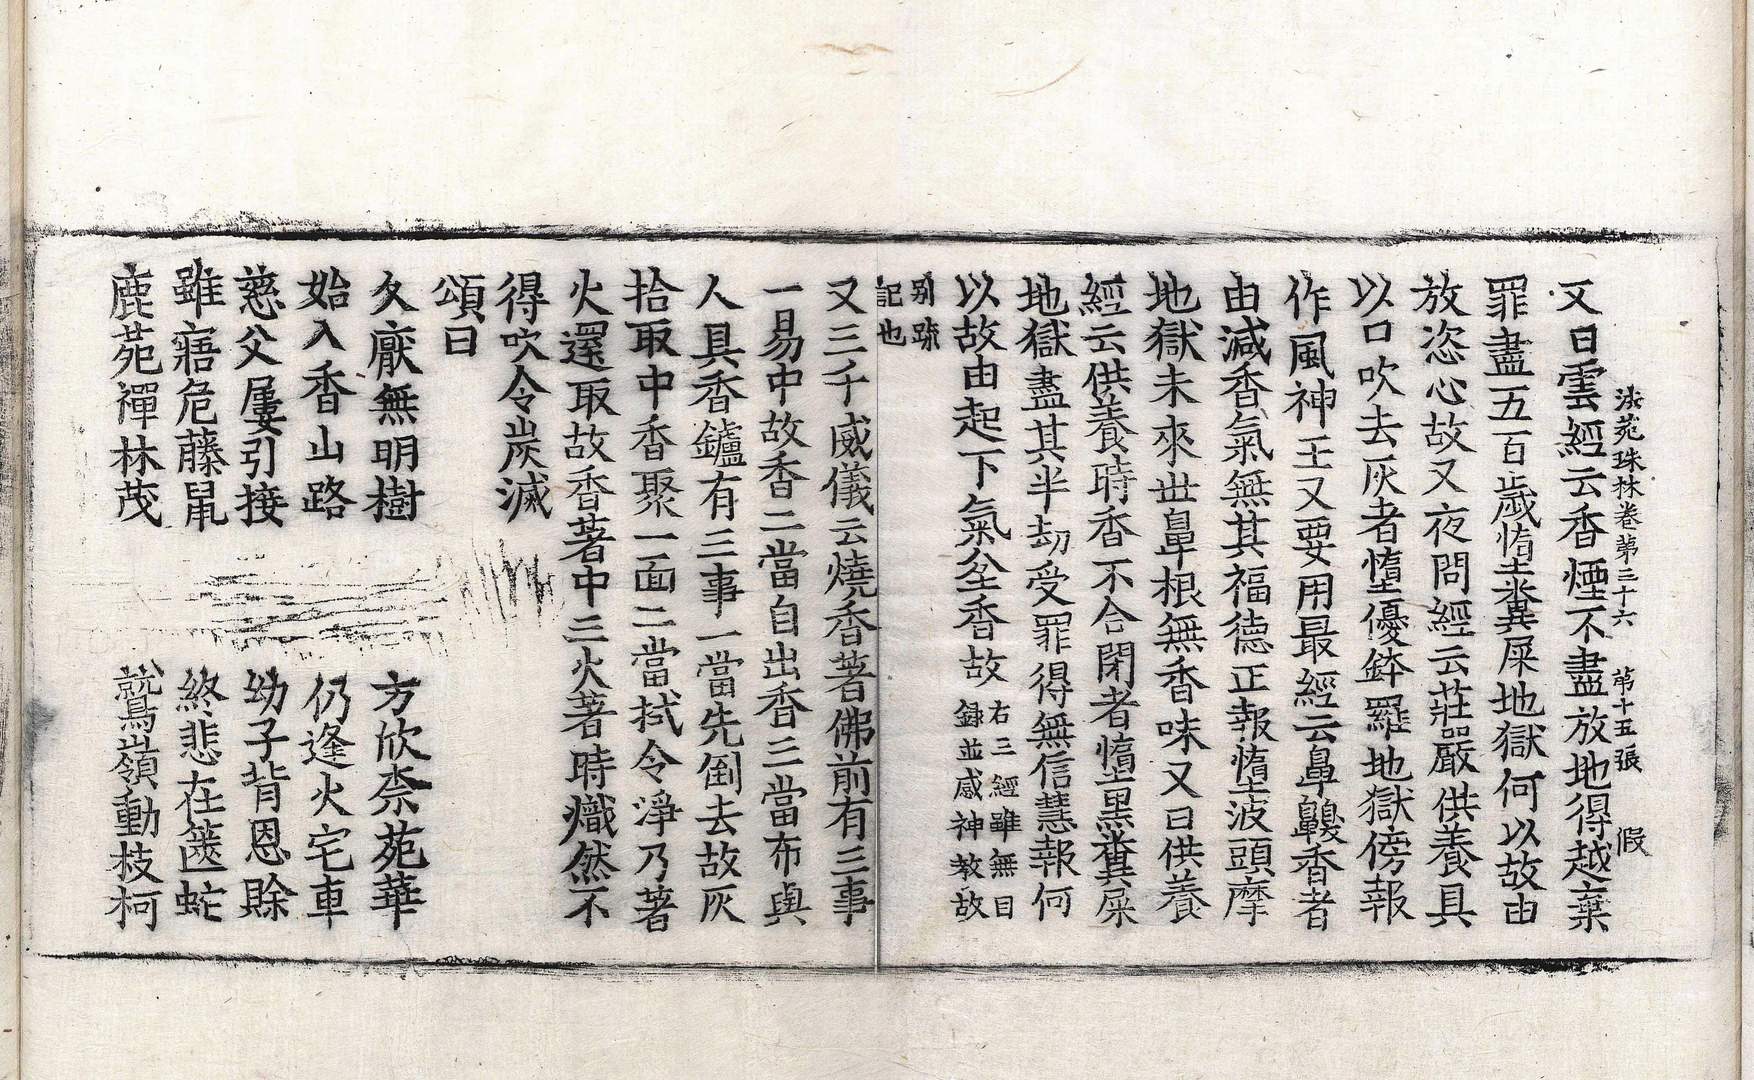 法苑珠林卷第三十六　第十五張　假
又日雲經云香煙不盡放地得越棄
罪盡五百歲墮糞屎地獄何以故由
放恣心故又夜問經云莊嚴供養具
以口吹去灰者墮優鉢羅地獄傍報
作風神王又要用最經云鼻齅香者
由減香氣無其福德正報墮波頭摩
地獄未來世鼻根無香味又曰供養
經云供養時香不合閉者墮黑糞屎
地獄盡其半劫受罪得無信慧報何
以故由起下氣坌香故
右三經雖無目
録並感神教故
别䟽
記也
又三千威儀云燒香著佛前有三事
一易中故香二當自出香三當布與
人具香鑪有三事一當先倒去故灰
拾取中香聚一面二當拭令淨乃著
火還取故香著中三火著時熾然不
得吹令炭滅
頌曰
久厭無明樹　方欣柰苑華
始入香山路　仍逢火宅車
慈父屢引接　幼子背恩賒
雖寤危藤鼠　終悲在篋虵
鹿苑禪林茂　鷲嶺動枝柯